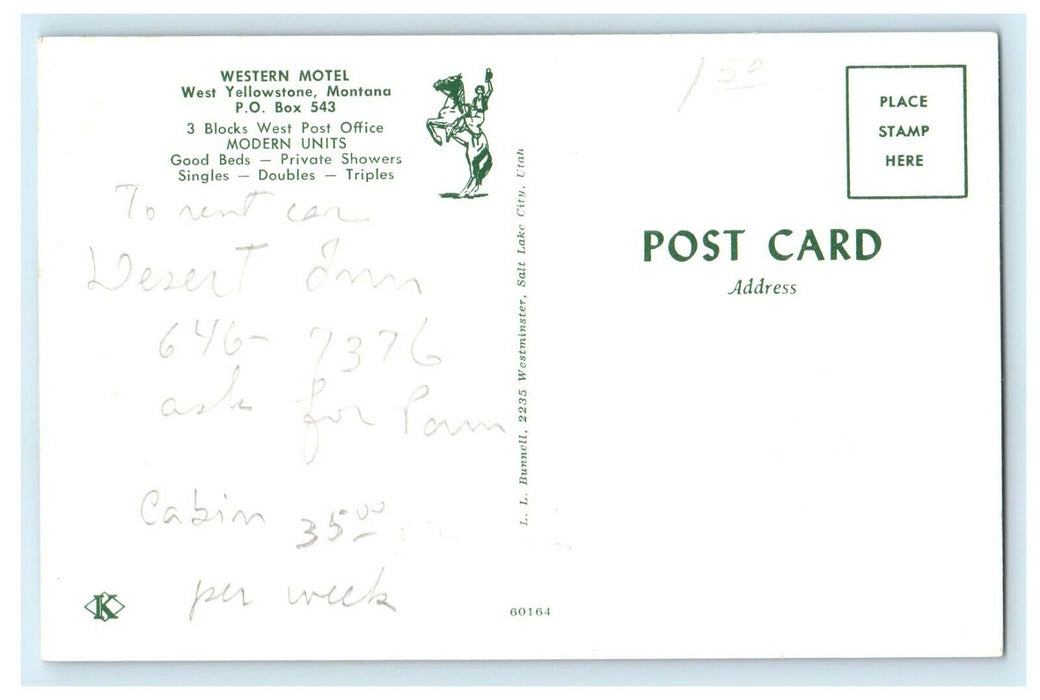 WESTERN MOTEL
West Yellowstone, Montana
P.O. Box 543
3 Blocks West Post Office
MODERN UNITS
Good Beds — Private Showers
Singles — Doubles — Triples
To rent car
Desert Inn
646-7376
ask for Pam
Cabin 35⁰⁰
per week
K
L. L. Bunnell, 2235 Westminster, Salt Lake City, Utah
60164
1 50
PLACE
STAMP
HERE
POST CARD
Address